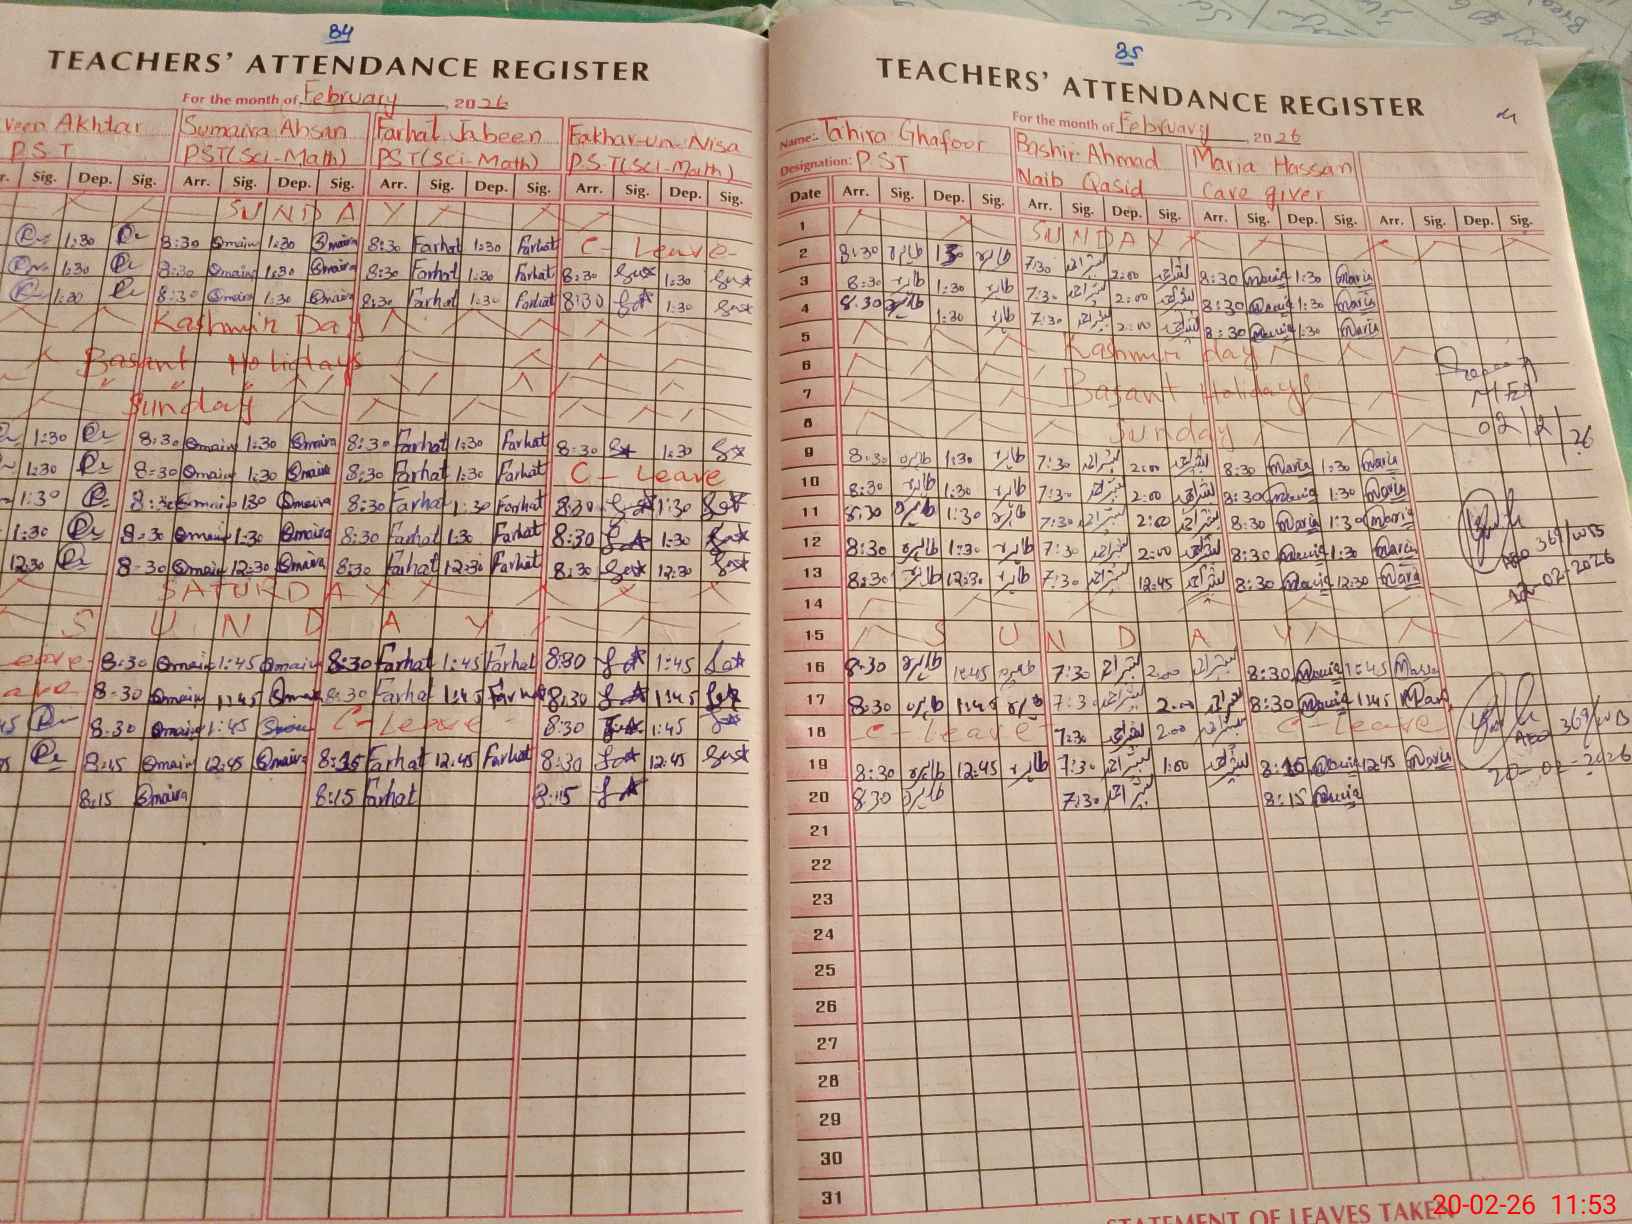 84
TEACHERS' ATTENDANCE REGISTER
For the month of February, 2026
veen Akhtar Sumaira Ahsan Farhat Jabeen Fakhar-un-Nisa
P.S.T PST(Sci-Math) PST(Sci-Math) P.S.T(Sci-Math)
r. Sig. Dep. Sig. Arr. Sig. Dep. Sig. Arr. Sig. Dep. Sig. Arr. Sig. Dep. Sig.
SUNDAY
1:30 8:30 Smaira 1:30 Smaira 8:30 Farhat 1:30 Farhat C-Leave-
1:30 8:30 Smaira 1:30 Smaira 8:30 Farhat 1:30 Farhat 8:30 1:30
1:30 8:30 Smaira 1:30 Smaira 8:30 Farhat 1:30 Farhat 8:30 1:30
Kashmir Day
Basant Holidays
Sunday
1:30 8:30 Smaira 1:30 Smaira 8:30 Farhat 1:30 Farhat 8:30 1:30
1:30 8:30 Smaira 1:30 Smaira 8:30 Farhat 1:30 Farhat C-Leave
1:30 8:30 Smaira 130 Smaira 8:30 Farhat 1:30 Farhat 8:30 1:30
1:30 8:30 Smaira 1:30 Smaira 8:30 Farhat 1:30 Farhat 8:30 1:30
12:30 8:30 Smaira 12:30 Smaira 8:30 Farhat 12:30 Farhat 8:30 12:30
SATURDAY
SUNDAY
eave- 8:30 Smaira 1:45 Smaira 8:30 Farhat 1:45 Farhat 8:30 1:45
ave 8:30 Smaira 1:45 Smaira 8:30 Farhat 1:45 Farhat 8:30 1:45
45 8:30 Smaira 1:45 C-Leave- 8:30 1:45
8:15 Smaira 12:45 Smaira 8:15 Farhat 12:45 Farhat 8:30 12:45
8:15 Smaira 8:15 Farhat 8:15
35
TEACHERS' ATTENDANCE REGISTER
For the month of February 2026
Name:- Tahira Ghafoor Bashir Ahmad Maria Hassan
Designation: P.ST Naib Qasid Care giver
Date Arr. Sig. Dep. Sig. Arr. Sig. Dep. Sig. Arr. Sig. Dep. Sig. Arr. Sig. Dep. Sig.
1 SUNDAY
2 8:30 طاہرہ 130 طاہرہ 7:30 بشیراحمد 2:00 بشیراحمد 8:30 Maria 1:30 Maria
3 8:30 طاہرہ 1:30 طاہرہ 7:30 بشیراحمد 2:00 بشیراحمد 8:30 Maria 1:30 Maria
4 8:30 طاہرہ 1:30 طاہرہ 7:30 بشیراحمد 2:00 بشیراحمد 8:30 Maria 1:30 Maria
5 Kashmir day
6
7 Basant Holidays
8 Sunday
02/2/26
9 8:30 طاہرہ 1:30 طاہرہ 7:30 بشیراحمد 2:00 بشیراحمد 8:30 Maria 1:30 Maria
10 8:30 طاہرہ 1:30 طاہرہ 7:30 بشیراحمد 2:00 بشیراحمد 8:30 Maria 1:30 Maria
11 8:30 طاہرہ 1:30 طاہرہ 7:30 بشیراحمد 2:00 بشیراحمد 8:30 Maria 1:30 Maria
12 8:30 طاہرہ 1:30 طاہرہ 7:30 بشیراحمد 2:00 بشیراحمد 8:30 Maria 1:30 Maria
AEO 369/WB
13 8:30 طاہرہ 12:30 طاہرہ 7:30 بشیراحمد 12:45 بشیراحمد 8:30 Maria 12:30 Maria
12-02-2026
14
15 SUNDAY
16 8:30 طاہرہ 1:45 طاہرہ 7:30 بشیراحمد 2:00 بشیراحمد 8:30 Maria 1:45 Maria
17 8:30 طاہرہ 1:45 طاہرہ 7:30 بشیراحمد 2:00 بشیراحمد 8:30 Maria 1:45 Maria
18 C-Leave 7:30 بشیراحمد 2:00 بشیراحمد C-Leave
AEO 369/WB
19 8:30 طاہرہ 12:45 طاہرہ 7:30 بشیراحمد 1:00 بشیراحمد 8:15 Maria 12:45 Maria
20-02-2026
20 8:30 طاہرہ 7:30 بشیراحمد 8:15 Maria
21
22
23
24
25
26
27
28
29
30
31
STATEMENT OF LEAVES TAKEN
20-02-26 11:53